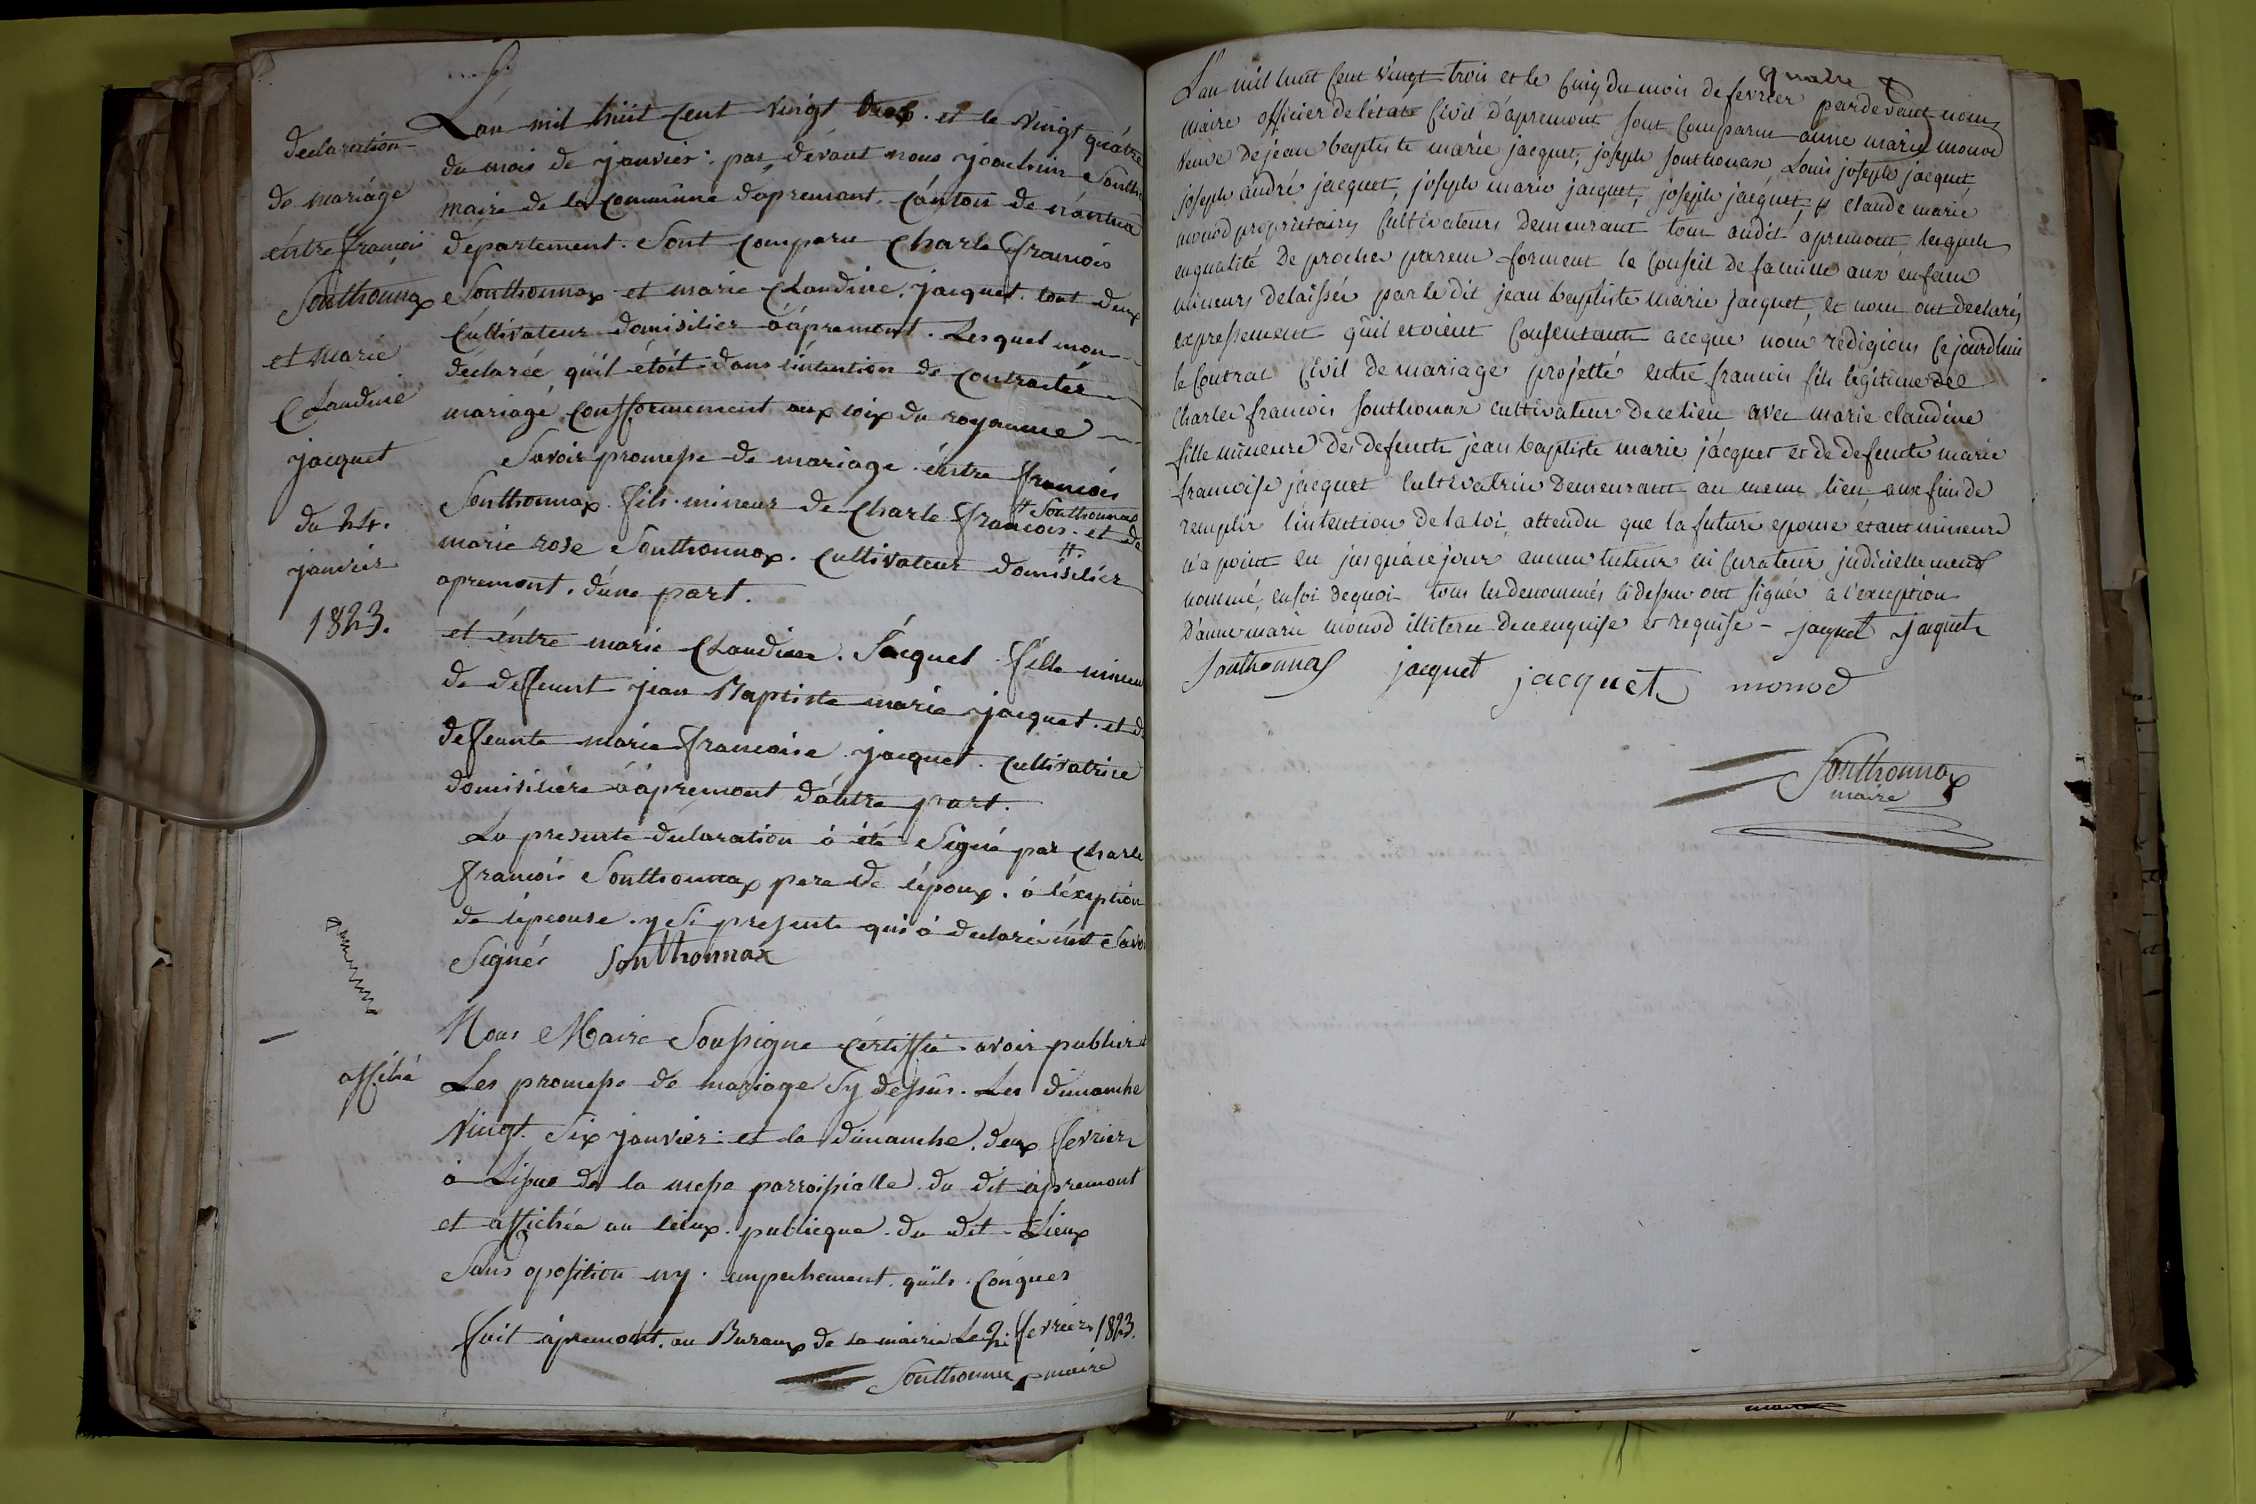 declaration
de mariage
entre francois
Sonthonnax
et Marie
Claudine
jacquet
du 24.
janvier
1823.
affiché
L'an mil huit cent vingt et le vingt quatre
du mois de janvier. par dévant nous joachim Sontho
maire de la Commune d'apremont. canton de nantua
département. Sont comparu Charle francois
Sonthonnax et marie Claudine. jacquet. tout deux
Cultivateur domisilier a apremont. Lesquel mon
déclarée qu'il étoit dans lintention de contracter
mariage, confformement aux loix du royaume
Savoir promesse de mariage. entre francois
Sonthonnax. fils. mineur de Charle francois. # Sonthonnax # et de
marie rose Sonthonnax. Cultivateur domisilier
apremont. d'une part.
et entre marie Claudine. Jacquet. fille mineu
de deffeunt jean Baptiste marie jacquet. et d
deffeunte marie francoise. jacquet. Cultivatrice
domisiliére a apremont d'autre part.
La presente déclaration à été Signé par Charle
francois Sonthonnax pere de l'époux. a l'éxeption
de l'épeouse. y si presente qui a declaré n'est Savo
Signér Sonthonnax
Nous Maire Soussigne Certiffie avoir publier
Les promesse de mariage Sy dessus. Les dimanche
Vingt. Six janvier. et le dimanche. deux fevrier
a Lissue de la messe parroissialle. du dit apremont
et affichée au lieux. publicque. du dit Lieux
Sans oposition ny. empechement. quils. conques
fait apremont. au Buraux de la mairie Le 2. fevrier 1823.
Sonthonnax maire
L'an mil huit cent vingt trois et le cinq du mois de fevrier pardevant nous
maire officier de létat Civil d'apremont sont comparus anne marie monod
veuve de jean baptiste marie jacquet, joseph sonthonax, Louis joseph jacquet,
joseph andré jacquet, joseph marie jacquet, joseph jacquet, et claude marie
monod proprietaires Cultivateurs demeurant tous audit apremont lesquels
en qualité de proches parens forment le Conseil de famille aux enfans
mineurs delaissés par le dit jean baptiste marie jacquet, et nous ont declarés
expressement qu'il etoient Consentants acceque nous redigions Ce jourdhui
le Contrat Civil de mariage projetté entre francois fils légitime de
Charles francois sonthonax cultivateur de ce lieu avec marie claudine
fille mineure des defunts jean baptiste marie jacquet et de defunte marie
francoise jacquet Cultivatrice demeurant au meme lieu, aux fins de
remplir l'intention de la loi, attendu que la future epouse étant mineure
n'a point eu jusqu'à ce jour aucun tuteur ni Curateur judiciellement
nommé, en foi dequoi tous les denommés cidessus ont signés à l'exception
D'anne marie monod illiterée de ce enquise et requise – jacquet jacquet
Sonthonnax jacquet jacquet monod
Sonthonnax
maire